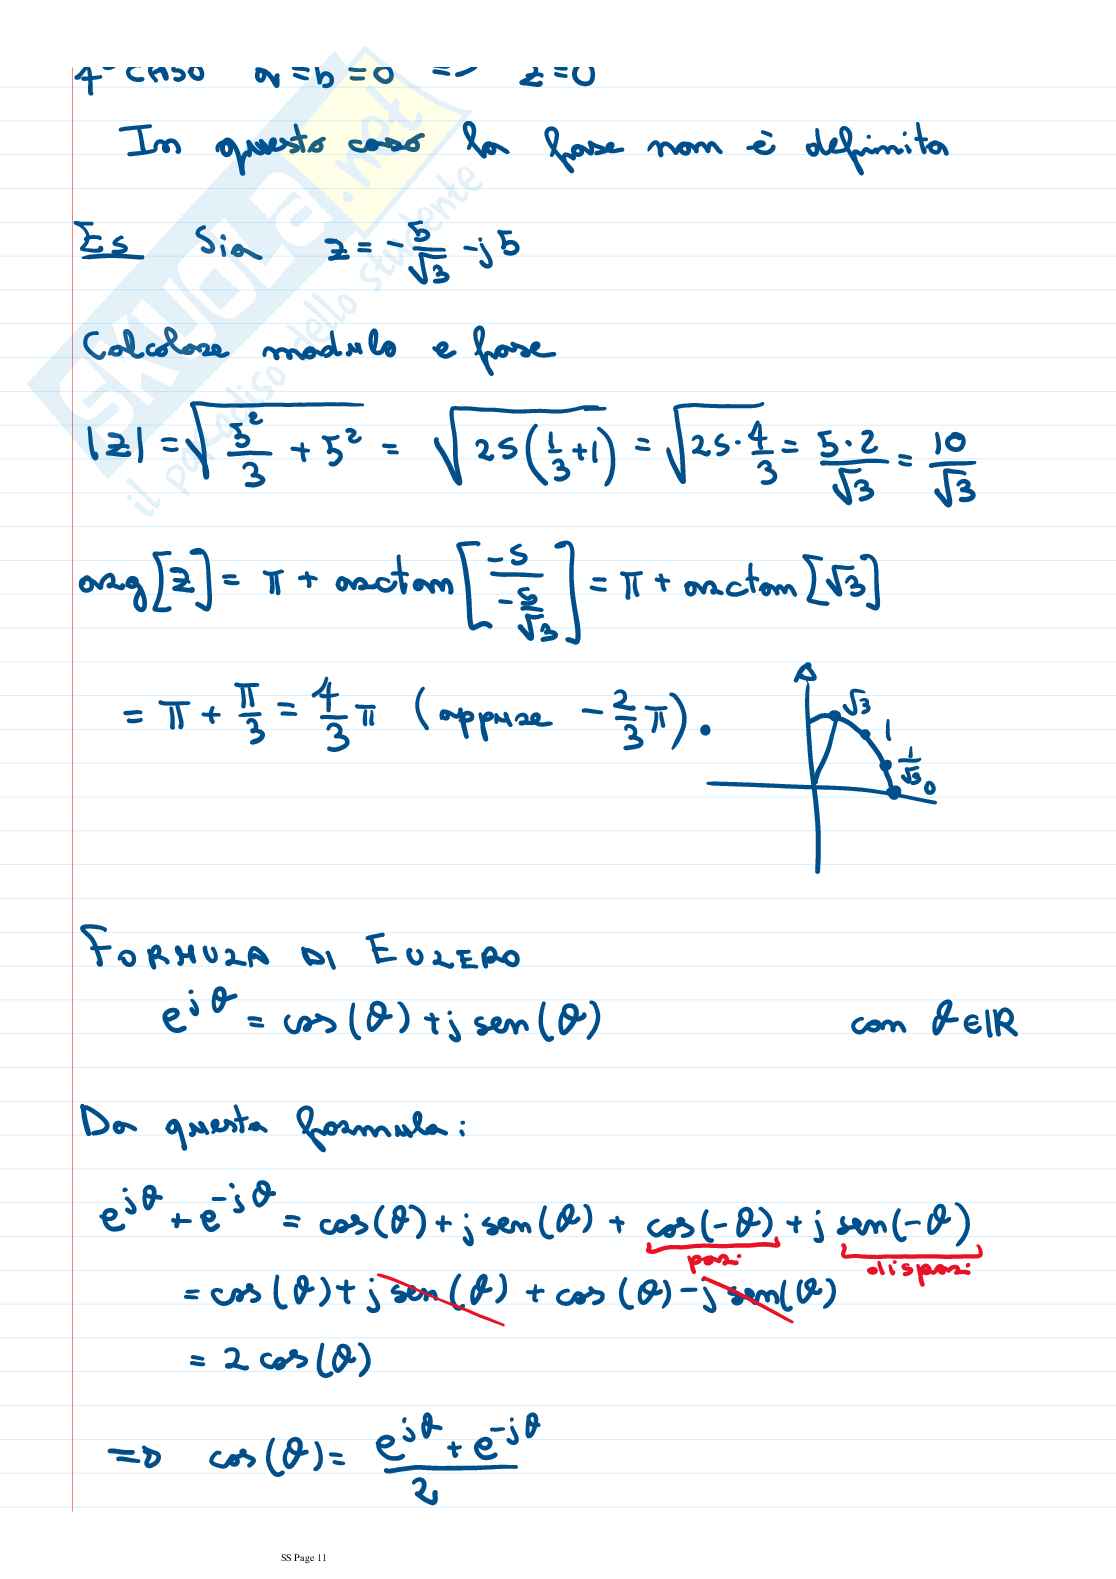 4° CASO a=b=0 => z=0
In questo caso la fase non è definita
Es Sia z = -5/√3 - j5
Calcolare modulo e fase
|z| = √(5²/3 + 5²) = √(25(1/3+1)) = √(25·4/3) = 5·2/√3 = 10/√3
arg[z] = π + arctan[-5/(-5/√3)] = π + arctan[√3]
= π + π/3 = 4/3 π (oppure -2/3 π).
√3
1
1/√3
0
FORMULA DI EULERO
e^{jθ} = cos(θ) + j sen(θ) con θ∈ℝ
Da questa formula:
e^{jθ} + e^{-jθ} = cos(θ) + j sen(θ) + cos(-θ) + j sen(-θ)
pari dispari
= cos(θ) + j sen(θ) + cos(θ) - j sen(θ)
= 2 cos(θ)
=> cos(θ) = (e^{jθ} + e^{-jθ})/2
SKUOLA.net
il paradiso dello studente
SS Page 11